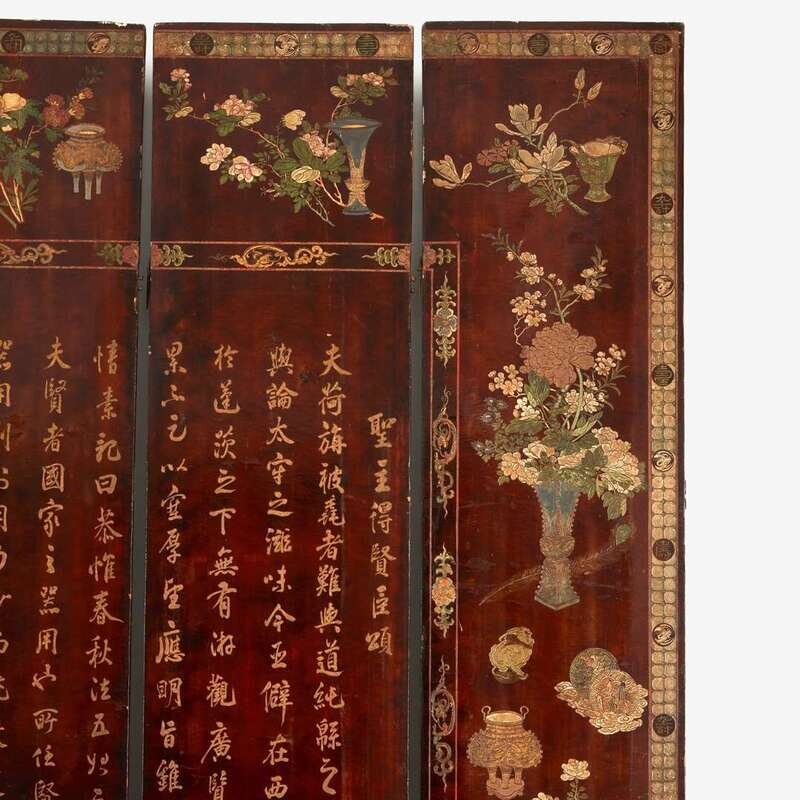 聖主得賢臣頌
夫荷旃被毳者難與道純緜之
輿論太牢之滋味今臣僻在西
於蓬茨之下無有游觀廣覽
累不足以塞厚望應明旨雖
情素記曰恭惟春秋法五始之
夫賢者國家之器用也所任賢
器用利